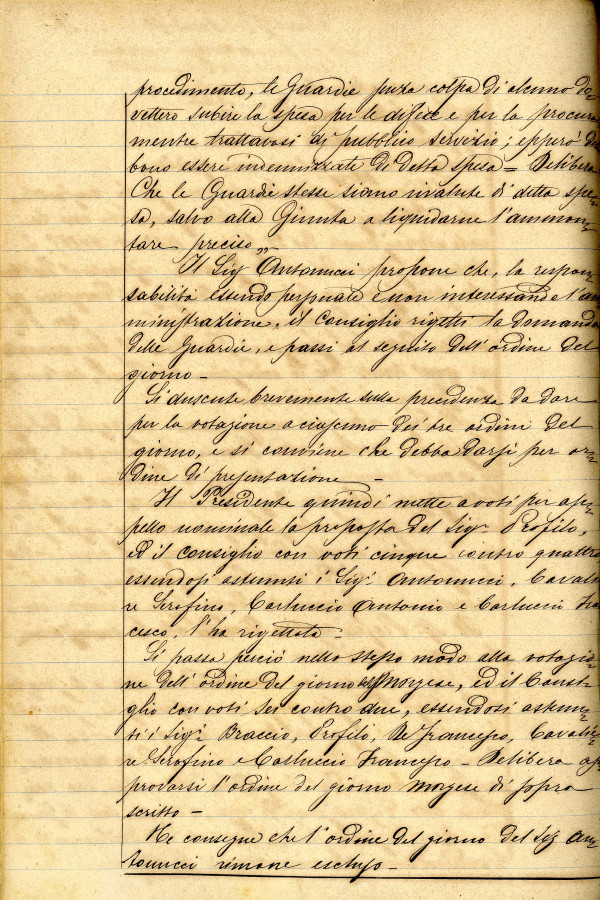 procedimento, le Guardie senza colpa di alcuno do=
vettero subire la spesa per le difese e per la procura
mentre trattavasi di pubblico servizio; epperò deb
bono essere indennizzate di detta spesa = Delibera
Che le Guardie stesse siano rivalute di detta spe=
sa, salvo alla Giunta a liquidarne l'ammon=
tare preciso„
Il Sigr Antonucci propone che, la respon=
sabilità essendo personale e non interessando l'am
ministrazione, il consiglio rigetti la domanda
delle Guardie, e passi al seguito dell'ordine del
giorno -
Si discute brevemente sulla precedenza da dare
per la votazione a ciascuno dei tre ordini del
giorno, e si conviene che debba darsi per or=
dine di presentazione -
Il Presidente quindi mette a voti per ap=
pello nominale la proposta del Sigr Profilo,
ed il consiglio con voti cinque contro quattro
essendosi astenuti i Sigri Antonucci, Cavalie
re Serafino, Carluccio Antonio e Carlucci Fran
cesco, l'ha rigettata -
Si passa perciò nello stesso modo alla votazio=
ne dell'ordine del giorno del Morgese, ed il Consi=
glio con voti sei contro due, essendosi astenu=
ti i Sigri Braccio, Profilo, De Francesco, Cavalie=
re Serafino e Carluccio Francesco - Delibera ap
provarsi l'ordine del giorno Morgese di sopra
scritto -
Ne consegue che l'ordine del giorno del Sigr An=
tonucci rimane escluso -